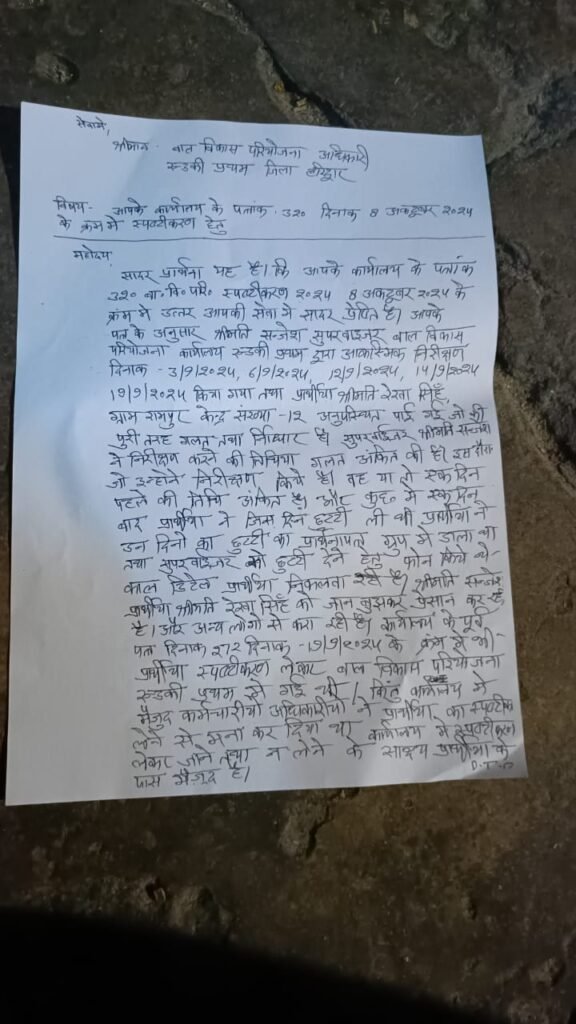 सेवामे,
श्रीमान - बाल विकास परियोजना अधिकारी
रूडकी प्रथम जिला हरिद्वार
विषय - आपके कार्यालय के पत्रांक. ३२० दिनांक 8 अक्टूबर २०२५
के क्रम मे स्पष्टीकरण हेतु
महोदय,
सादर प्रार्थना यह है। कि आपके कार्यालय के पत्रांक
३२० बा. वि० परि० स्पष्टीकरण २०२५ 8 अकटूबर २०२५ के
क्रम मे उत्तर आपकी सेवा मे सादर प्रेषित है। आपके
पत्र के अनुसार श्रीमति सन्जेश सुपरवाइजर बाल विकास
परियोजना कार्यालय रूडकी प्रथम द्वारा आकास्मिक निरीक्षण
दिनाक - 3/9/२०२५, 6/9/२०२५, 12/9/२०२५, 14/9/२०२५
19/9/२०२५ किया गया तथा प्रार्थीया श्रीमति रेखा सिंह
ग्राम रामपुर केन्द्र संख्या -12 अनुपस्थित पाई गई जो की
पुरी तरह गलत तथा है। सुपरवाईजर श्रीमति सन्जेश
ने निरीक्षण करने की तिथिया गलत अंकित की है। इस
जो उन्होने निरीक्षण किये है। वह या तो एक दिन
पहले की तिथि अंकित है। और कुछ मे एक दिन
बाद प्रार्थीया ने जिस दिन छुटटी ली थी प्रार्थीया ने
उन दिनो का छुटटी का प्रार्थनापत्र ग्रुप मे डाला था
तथा सुपरवाईजर को छुटटी देने हेतु फोन किये थे-
काल डिटेल प्रार्थीया निकलवा रही है। श्रीमति सन्जेश
प्रार्थीया श्रीमति रेखा सिंह को जान बुझकर परेसान कर रहे
है। और अन्य लोगो से करा रही है। कार्यालय के पूर्व
पत्र दिनाक २९२ दिनाक -19/9/२०२५ के क्रम मे भी-
प्रार्थीया स्पष्टीकरण लेकर बाल विकास परियोजना
रूडकी प्रथम मे गई थी। किंतु कार्यालय मे
मैजुद कर्मचारीयो अधिकारीयो ने प्रार्थीया का स्पष्टीक
लेने से मना कर दिया था कार्यालय मे स्पष्टीकरण
लेकर जाने तथा न लेने के साक्ष्य प्रार्थीया के
पास मैजुद है।
P.T.O